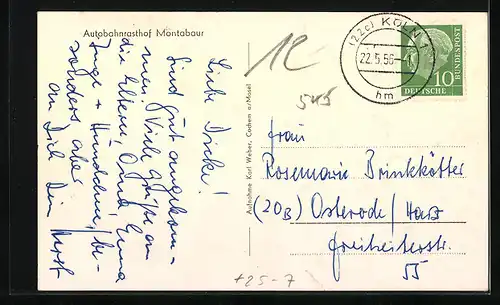 Autobahnrasthof Montabaur
Liebe Dicke!
Sind gut angekom-
men. Viele Grüße an
die Eltern, Oma, Erna
Inge + Hündchen, be-
sonders aber
an Dich Dein Horst
Aufnahme Karl Weber, Cochem a/Mosel
12
545
(22c) KÖLN 1
22.5.56-
hm
10
DEUTSCHE
BUNDESPOST
Frau
Rosemarie Brinkkötter
(20B) Osterode/Harz
Freiheiterstr.
55
+25-7